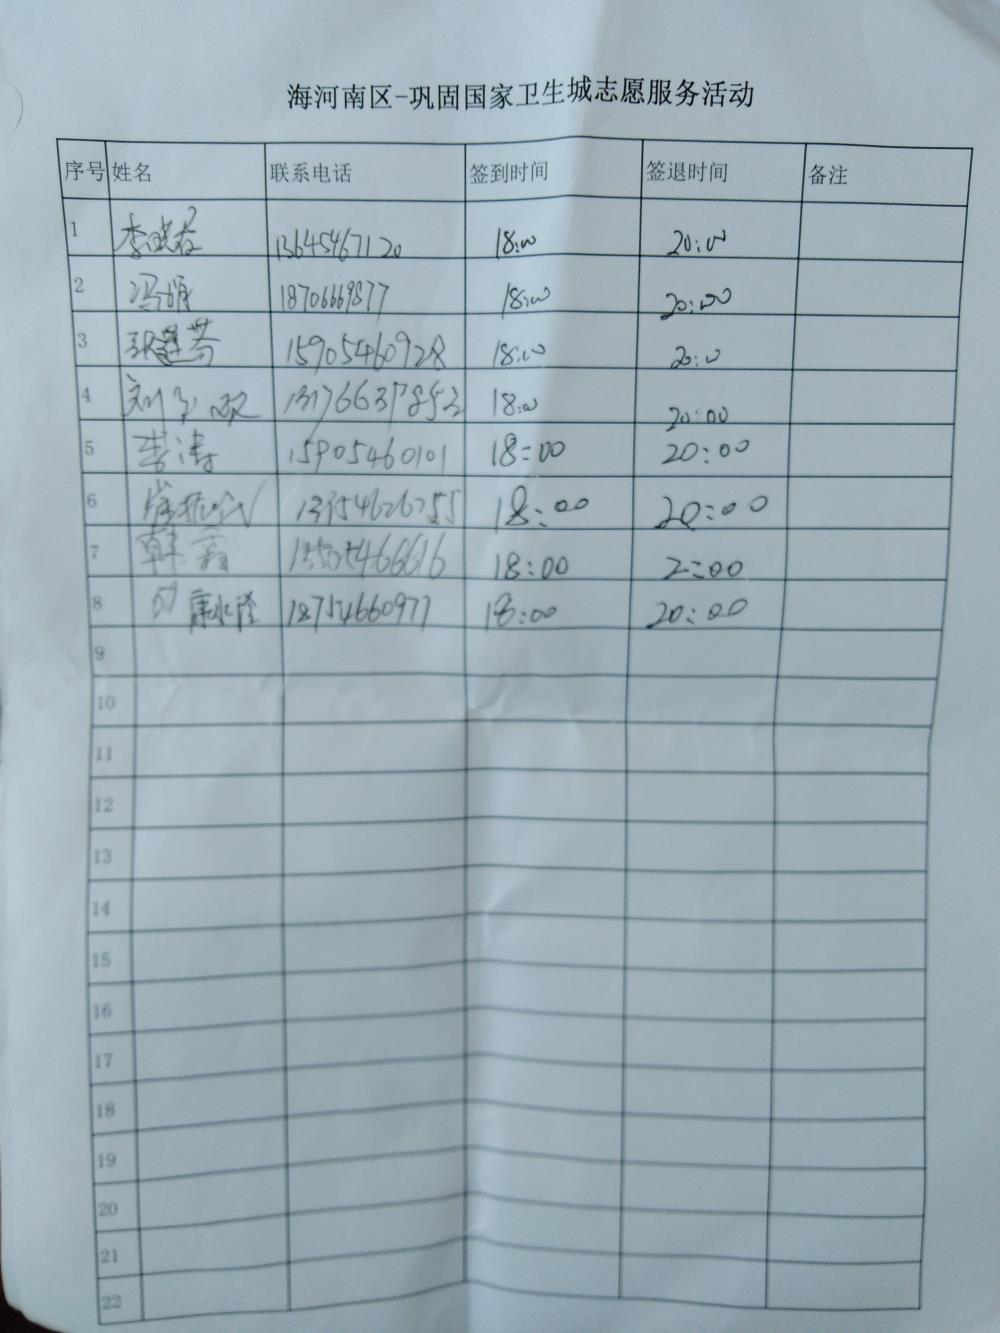 海河南区-巩固国家卫生城志愿服务活动
序号 姓名 联系电话 签到时间 签退时间 备注
1 李晓春 13645467120 18:00 20:00
2 冯娟 18706669877 18:00 20:00
3 15905460928 18:00 20:00
4 13176637852 18:00 20:00
5 李涛 15905460101 18:00 20:00
6 13954626755 18:00 20:00
7 韩霞 18:00 2:00
8 康永隆 18754660977 18:00 20:00
9
10
11
12
13
14
15
16
17
18
19
20
21
22